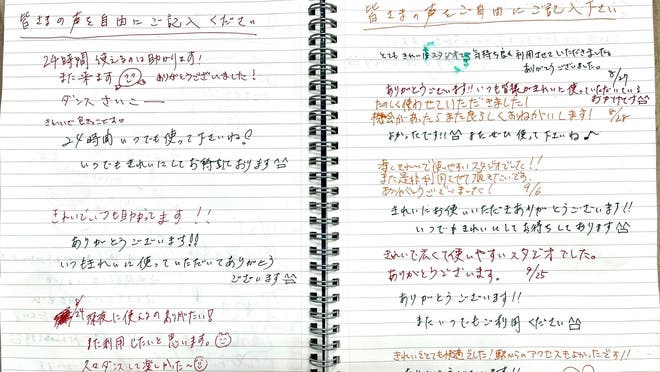 皆さまの声を自由にご記入ください
24時間使えるのは助かります!
また来ます ありがとうございました!
ダンスさいこー
きれいで良きでございます。
24時間いつでも使って下さいね!
いつでもきれいにしてお待ちしております
きれいでいつも助かってます!!
ありがとうございます!!
いつもきれいに使っていただいてありがとう
ございます
深夜に使えるのありがたい!
また利用したいと思います。
スロダンスして楽しかった〜
皆さまの声をご自由にご記入下さい
とてもきれいなスタジオで気持ち良く利用させていただきました。
ありがとうございました。 8/27
ありがとうございます!!いつも皆様がきれいに使っていただいている
おかげです
たのしく使わせていただきました!
機会があったらまた良ろしくおねがいします! 8/28
よかったです!! またぜひ使って下さいね♪
広くてきれいで使いやすいスタジオでした!!
また是非利用させて頂きたいです。
ありがとうございました! 9/6
きれいにお使いいただきありがとうございます!!
いつでもきれいにしてお待ちしております
きれいで広くて使いやすいスタジオでした。
ありがとうございます。 9/25
ありがとうございます!!
またいつでもご利用ください
きれいでとても快適でした!駅からのアクセスもよかったです!!
ありがとうございます!!